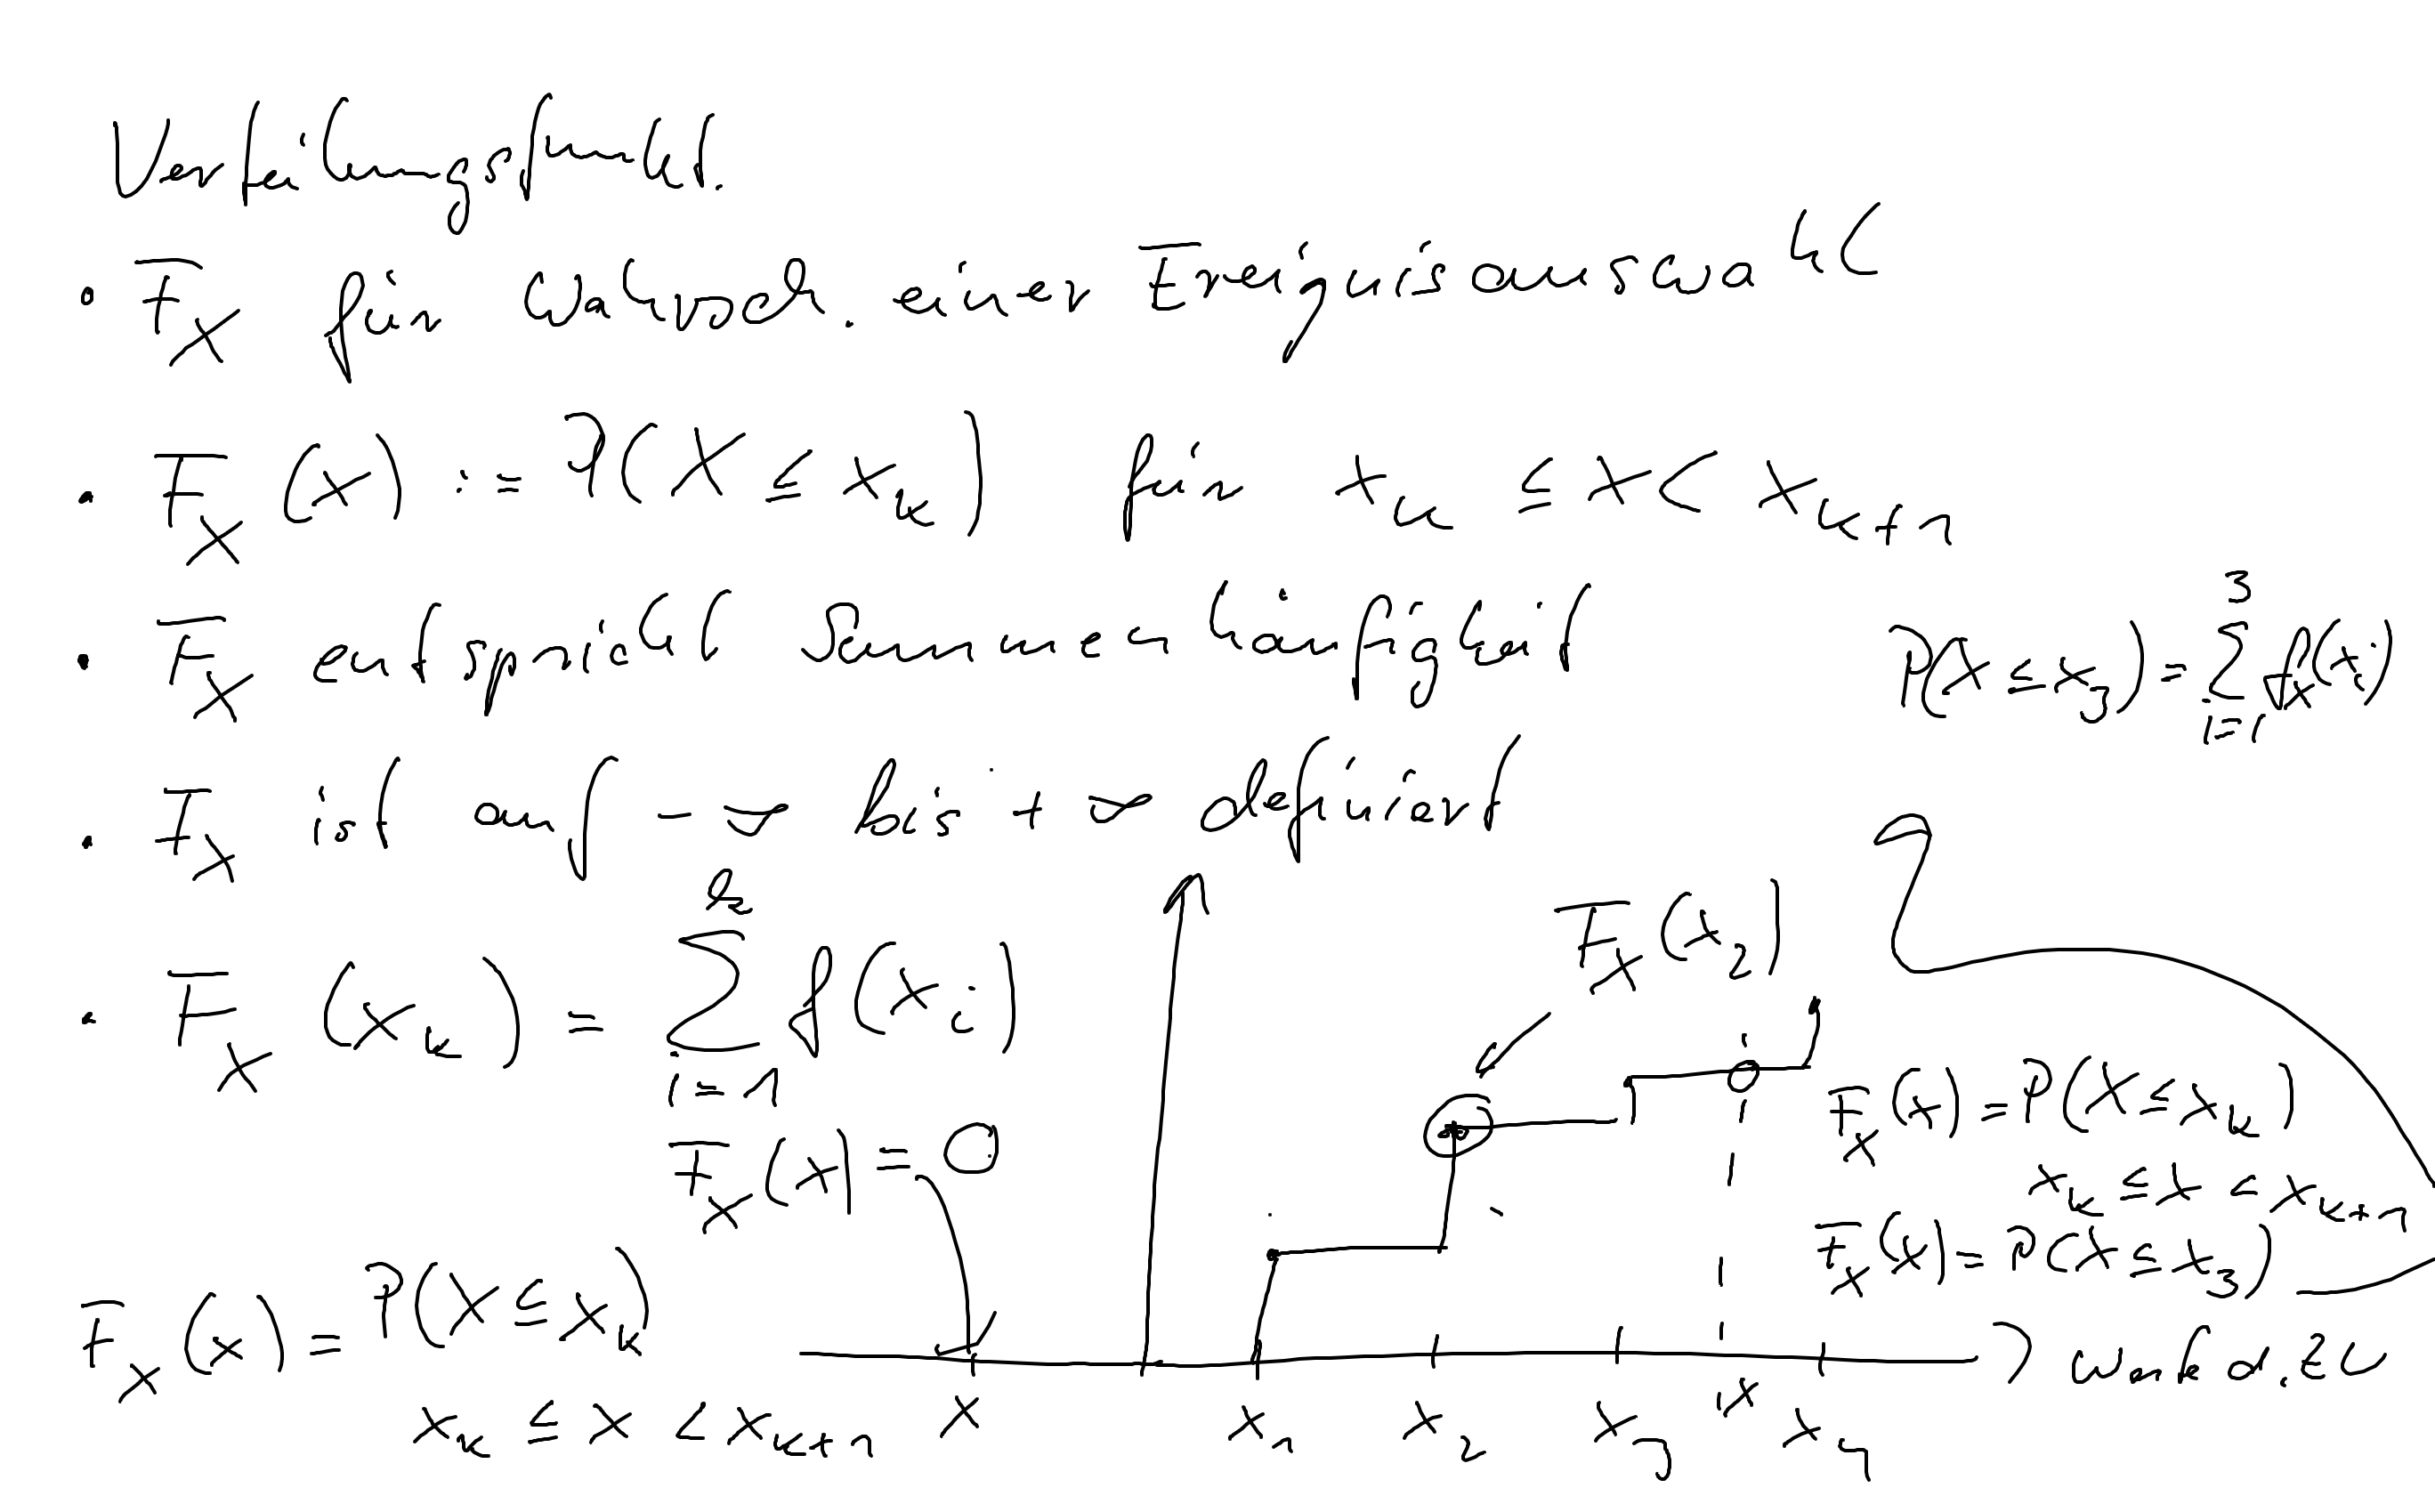 Verteilungsfunkt.
• F_X für Wahrsch. einer Ereignisanzahl
• F_X(x) := P(X ≤ x_k) für x_k ≤ x < x_{k+1}
• F_X entspricht Summenhäufigkeit
P(X ≤ x_3) = ∑_{i=1}^{3} f_X(x_i)
• F_X ist auf -∞ bis +∞ definiert
• F_X(x_k) = ∑_{i=1}^{k} f(x_i)
F_X(x_2)
F_X(x) = P(X ≤ x_k)
x_k ≤ x ≤ x_{k+1}
F_X(x) = 0
F_X(x) = P(X ≤ x_3)
F_X(x) = P(X ≤ x_k)
x_k ≤ x < x_{k+1}
x x_1 x_2 x_3 x x_4